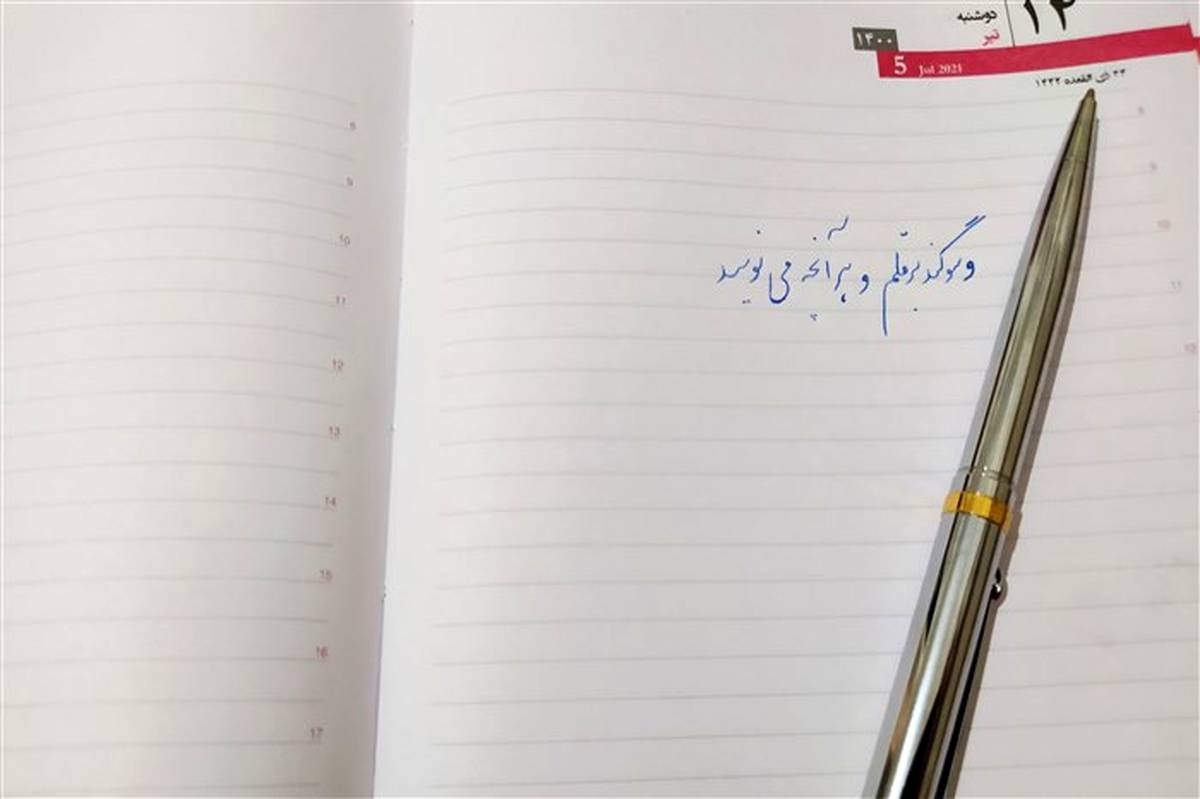 ۱۴
دوشنبه
تیر
۱۴۰۰
5 Jul 2021
۲۴ ذی القعده ۱۴۴۲
و سوگند بر قلم و هر آنچه می نویسد
8
9
10
11
12
13
14
15
16
17
8
9
10
11
12